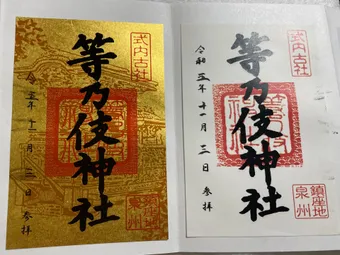 式内古社
等乃伎神社
令和五年十一月三日参拝
式内古社
等乃伎神社
令和五年十一月三日参拝
鎮座地
泉州